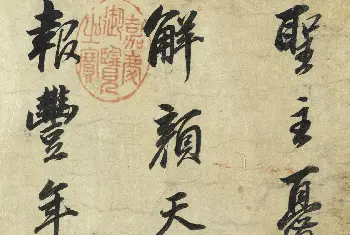 聖主憂
解顔天
報豐年
嘉慶
御覽
之寶